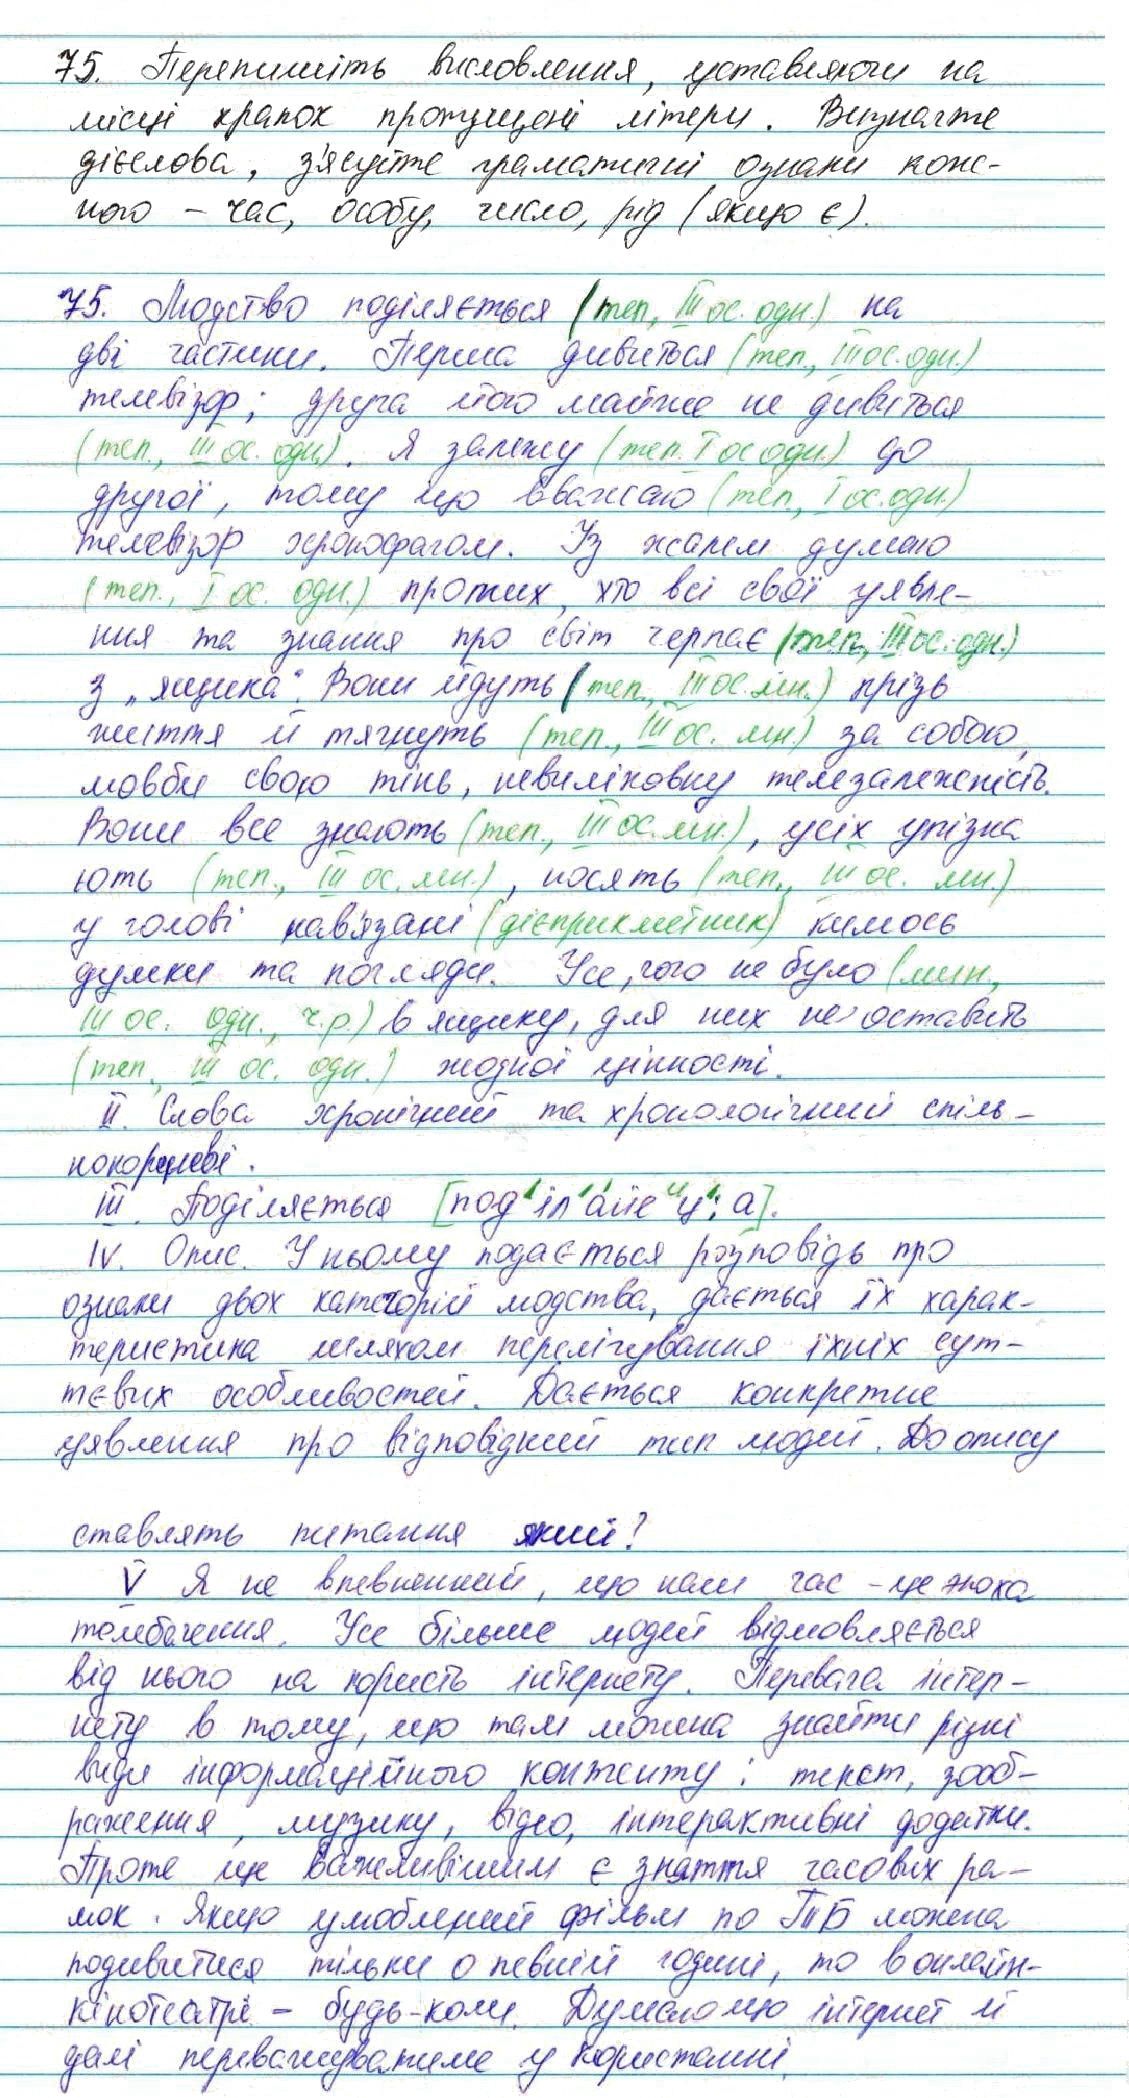 75. Перепишіть висловлення, уставляючи на
місці крапок пропущені літери. Визначте
дієслова, з'ясуйте граматичні ознаки кож-
ного – час, особу, число, рід (якщо є).
75. Людство поділяється (теп., III ос. одн.) на
дві частини. Перша дивиться (теп., III ос. одн.)
телевізор; друга його майже не дивиться
(теп., III ос. одн.). Я залежу (теп. I ос одн.) до
другої, тому що вважаю (теп., I ос. одн.)
телевізор хронофагом. Із жалем думаю
(теп., I ос. одн.) про тих, хто всі свої уявле-
ння та знання про світ черпає (теп., III ос. одн.)
з „ящика". Вони йдуть (теп., III ос. мн.) крізь
життя й тягнуть (теп., III ос. мн.) за собою,
мовби свою тінь, невиліковну телезалежність.
Вони все знають (теп., III ос. мн.), усіх упізна
ють (теп., III ос. мн.), носять (теп., III ос. мн.)
у голові нав'язані (дієприкметник) кимось
думки та погляди. Усе, чого не було (мин.,
III ос. одн., ч.р.) в ящику, для них не оставить
(теп., III ос. одн.) жодної цінності.
II. Слова хронічний та хронологічний спіль-
нокореневі.
III. Поділяється [под'іл'айеиц':а].
IV. Опис. У ньому подається розповідь про
ознаки двох категорій людства, дається їх харак-
теристика шляхом перелічування їхніх сут-
тєвих особливостей. Дається конкретне
уявлення про відповідний тип людей. До опису
ставлять питання який?
V Я не впевнений, що наш час – це епоха
телебачення. Усе більше людей відмовляється
від нього на користь інтернету. Перевага інтер-
нету в тому, що там можна знайти різні
види інформаційного контенту: текст, зооб-
раження, музику, відео, інтерактивні додатки.
Проте ще важливішим є зняття часових ра-
мок. Якщо улюблений фільм по ТБ можна
подивитися тільки о певній годині, то в онлайн-
кінотеатрі – будь-коли. Думаю що інтернет й
далі переважуватиме у користанні.